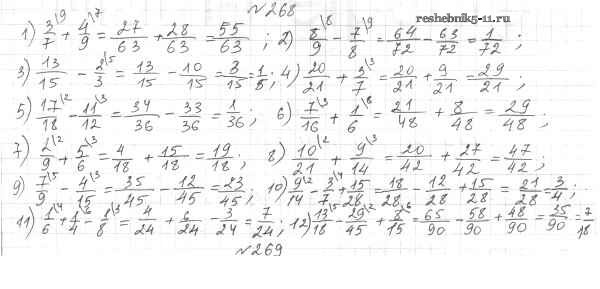 №268
reshebnik5-11.ru
1) 3/7 \9 + 4/9 \7 = 27/63 + 28/63 = 55/63 ; 2) 8/9 \8 − 7/8 \9 = 64/72 − 63/72 = 1/72 ;
3) 13/15 − 2/3 \5 = 13/15 − 10/15 = 3/15 = 1/5 ; 4) 20/21 + 3/7 \3 = 20/21 + 9/21 = 29/21 ;
5) 17/18 \2 − 11/12 \3 = 34/36 − 33/36 = 1/36 ; 6) 7/16 \3 + 1/6 \8 = 21/48 + 8/48 = 29/48 ;
7) 2/9 \2 + 5/6 \3 = 4/18 + 15/18 = 19/18 ; 8) 10/21 \2 + 9/14 \3 = 20/42 + 27/42 = 47/42 ;
9) 7/9 \5 − 4/15 \3 = 35/45 − 12/45 = 23/45 ; 10) 9/14 \2 − 3/7 \4 + 15/28 = 18/28 − 12/28 + 15/28 = 21/28 = 3/4 ;
11) 1/6 \4 + 1/4 \6 − 1/8 \3 = 4/24 + 6/24 − 3/24 = 7/24 ; 12) 13/18 \5 − 29/45 \2 + 8/15 \6 = 65/90 − 58/90 + 48/90 = 35/90 = 7/18
№269